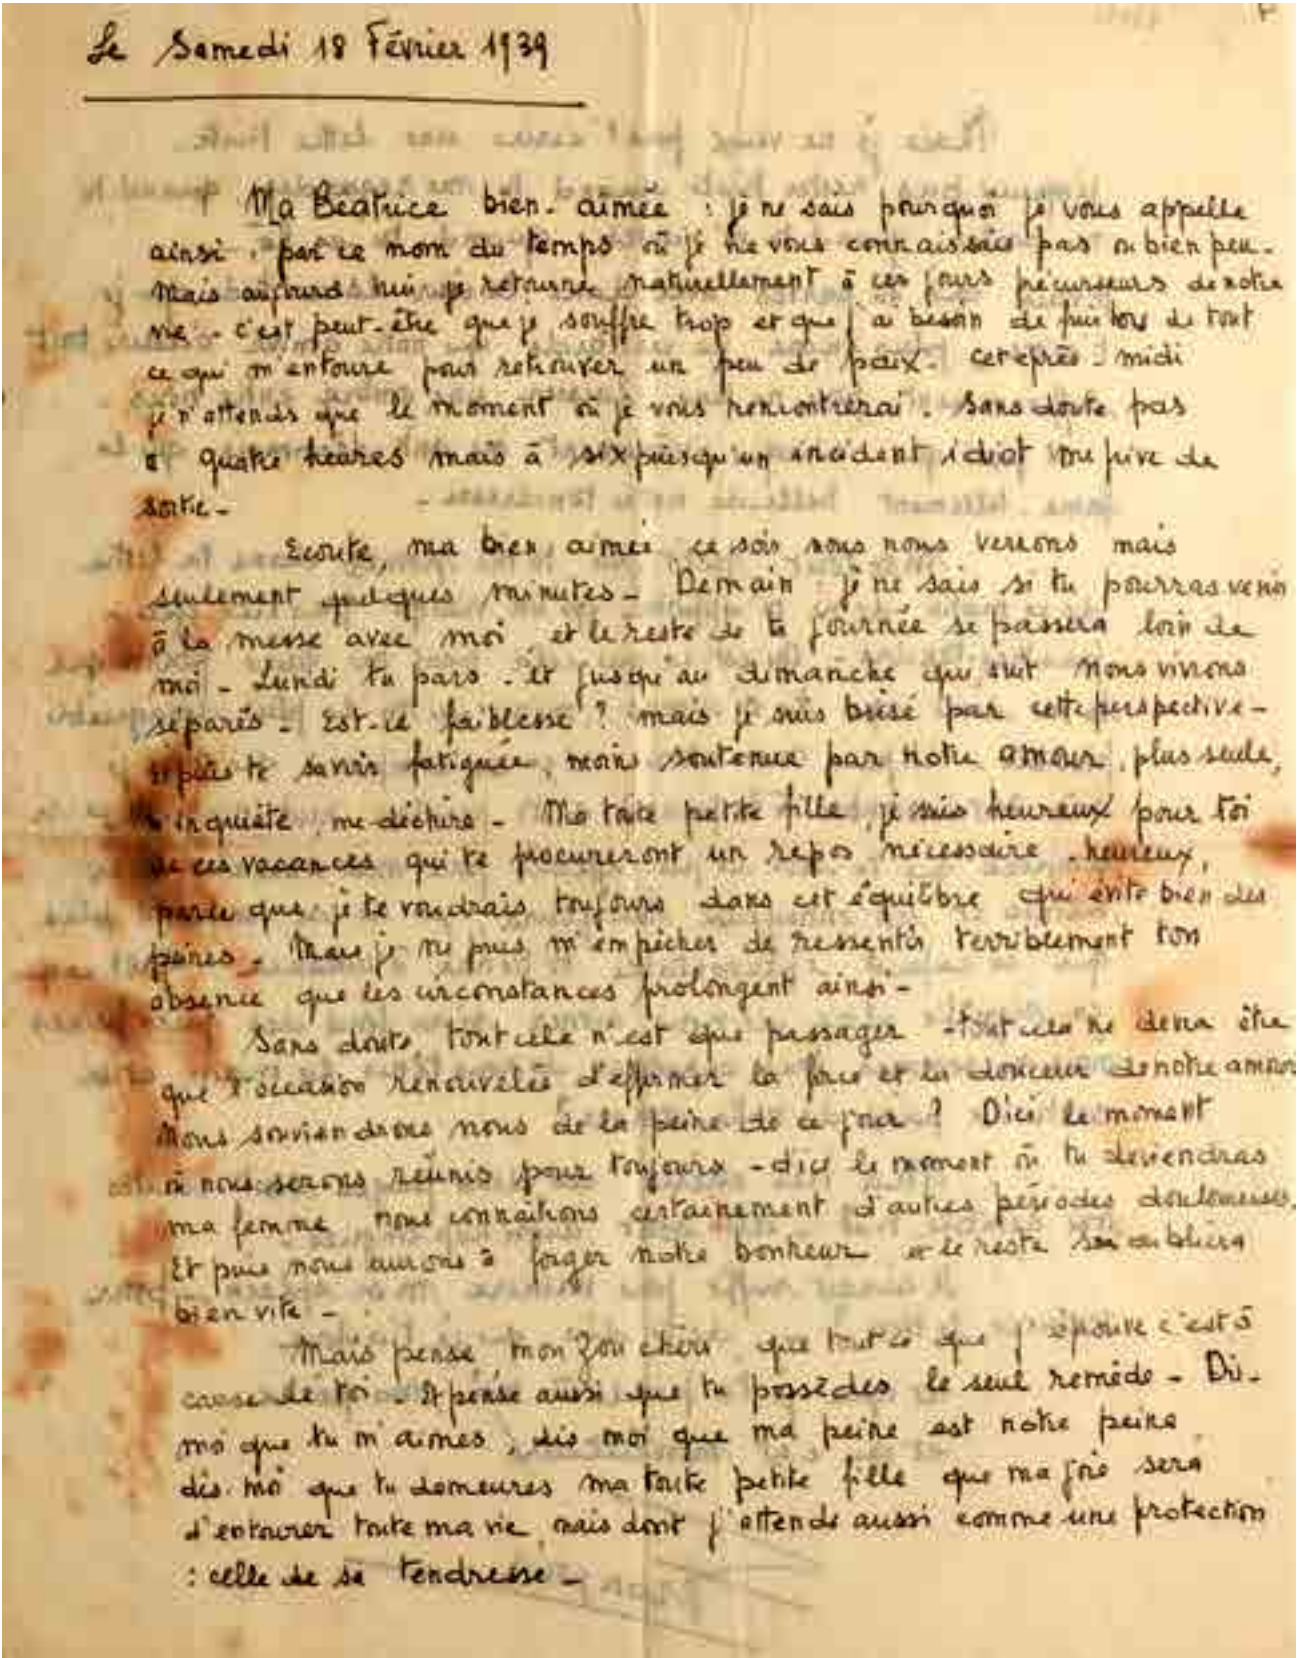 Le Samedi 18 Février 1939
Ma Béatrice bien-aimée : je ne sais pourquoi je vous appelle
ainsi, par ce nom du temps où je ne vous connaissais pas ou bien peu.
Mais aujourd'hui je retourne naturellement à ces jours précurseurs de notre
vie - c'est peut-être que je souffre trop et que j'ai besoin de fuir hors de tout
ce qui m'entoure pour retrouver un peu de paix. cet après-midi
je n'attends que le moment où je vous rencontrerai. Sans doute pas
à quatre heures mais à six puisqu'un incident idiot me prive de
sortie -
Ecoute, ma bien aimée ce soir nous nous verrons mais
seulement quelques minutes - Demain je ne sais si tu pourras venir
à la messe avec moi, et le reste de ta journée se passera loin de
moi - Lundi tu pars - et jusqu'au dimanche qui suit nous vivrons
séparés - Est-ce faiblesse ? mais je suis brisé par cette perspective -
et puis te savoir fatiguée, moins soutenue par notre amour, plus seule,
m'inquiète, me déchire - Ma toute petite fille, je suis heureux pour toi
de ces vacances qui te procureront un repos nécessaire - heureux,
parce que je te voudrais toujours dans cet équilibre qui évite bien des
peines - Mais je ne puis m'empêcher de ressentir terriblement ton
absence que les circonstances prolongent ainsi -
Sans doute, tout cela n'est que passager - tout cela ne devra être
que l'occasion renouvelée d'affirmer la force et la douceur de notre amour
Nous souviendrons nous de la peine de ce jour ? D'ici le moment
où nous serons réunis pour toujours - d'ici le moment où tu deviendras
ma femme nous connaîtrons certainement d'autres périodes douloureuses.
Et puis nous aurons à forger notre bonheur et le reste s'en oubliera
bien vite -
Mais pense, mon Zou chéri que tout ce que j'éprouve c'est à
cause de toi - Et pense aussi que tu possèdes le seul remède - Dis-
moi que tu m'aimes, dis moi que ma peine est notre peine
dis-moi que tu demeures ma toute petite fille que ma joie sera
d'entourer toute ma vie, mais dont j'attends aussi comme une protection
: celle de sa tendresse -